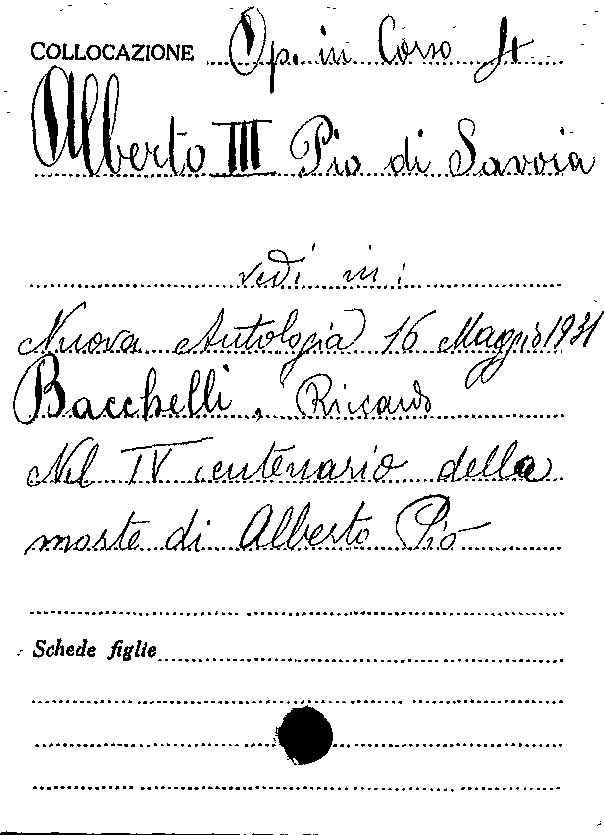 COLLOCAZIONE Op. in Corso It
Alberto III Pio di Savoia
vedi in:
Nuova Antologia 16 Maggio 1931
Bacchelli, Riccardo
Nel IV centenario della
morte di Alberto Pio
Schede figlie